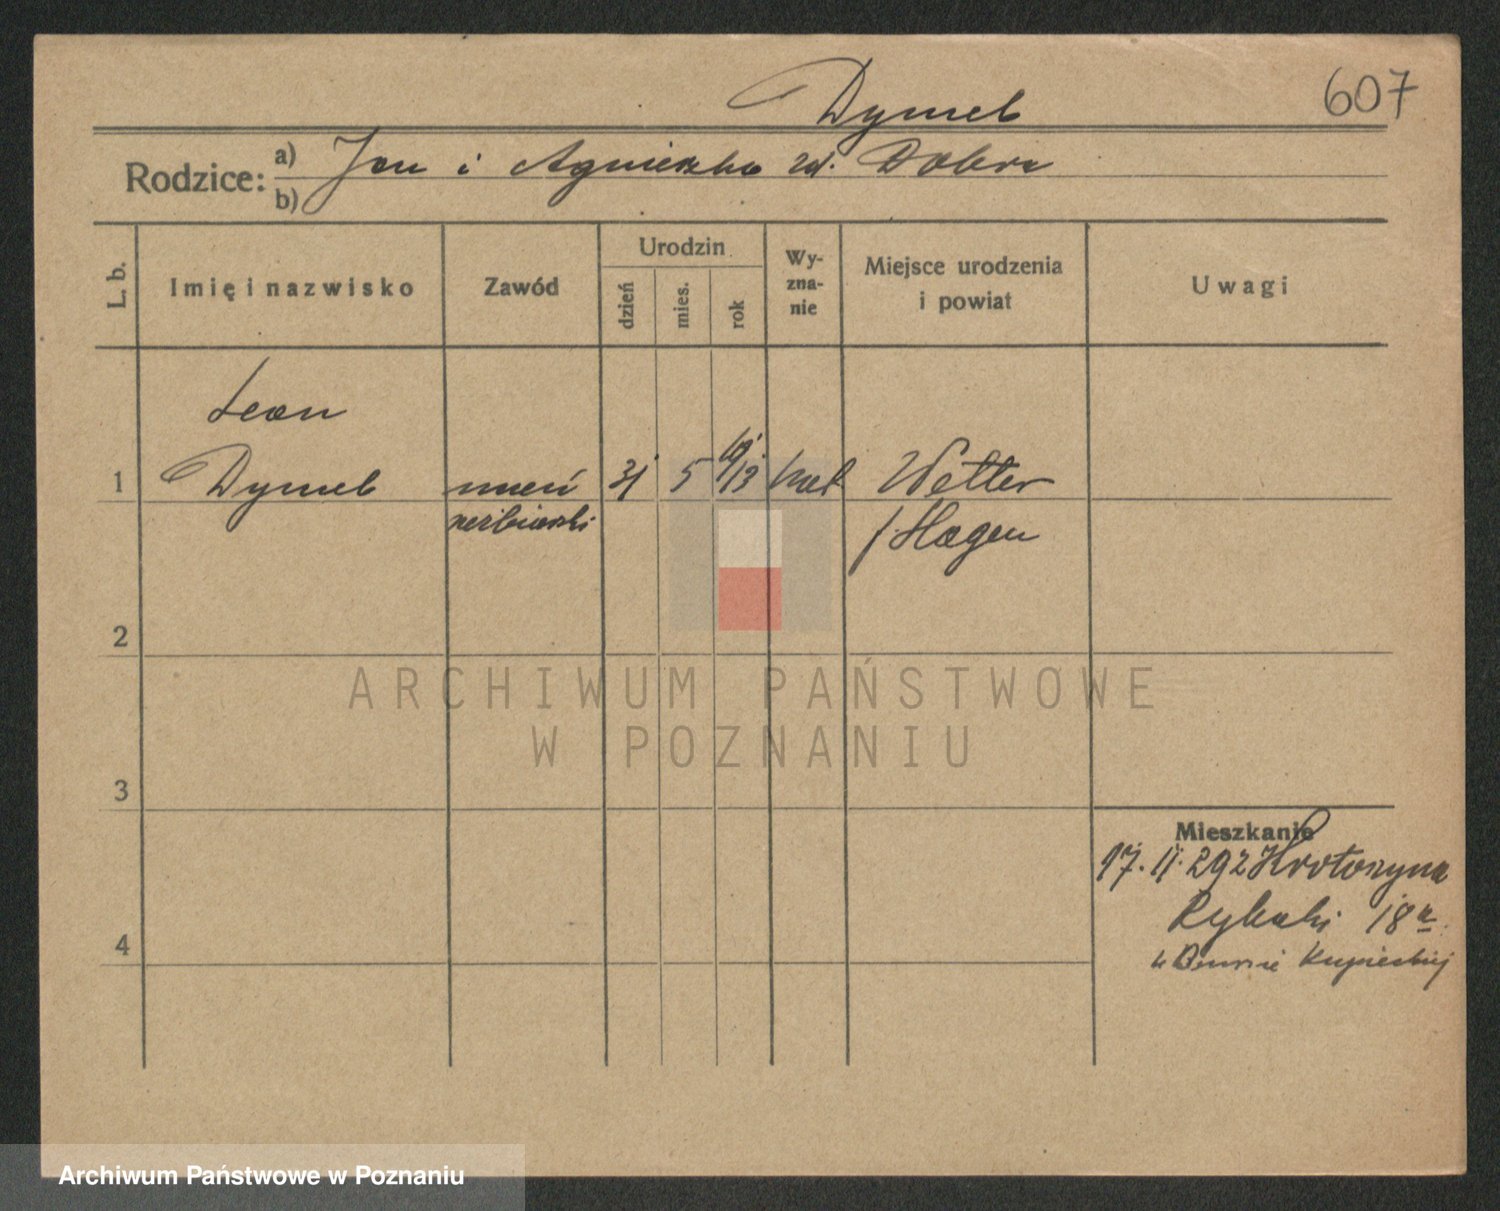 607
Dymel
Rodzice: a) Jan i Agnieszka zd. Dobra
b)
L. b. Imię i nazwisko Zawód Urodzin dzień mies. rok Wyznanie Miejsce urodzenia i powiat Uwagi
Leon
1 Dymel uczeń 31 5 1913 kat Wetter
rzeźbiarski /Hagen
2
3
4
Mieszkanie
17. II. 29 z Krotoszyna
Rybaki 18a
w Bursie Kupieckiej
ARCHIWUM PAŃSTWOWE
W POZNANIU
Archiwum Państwowe w Poznaniu